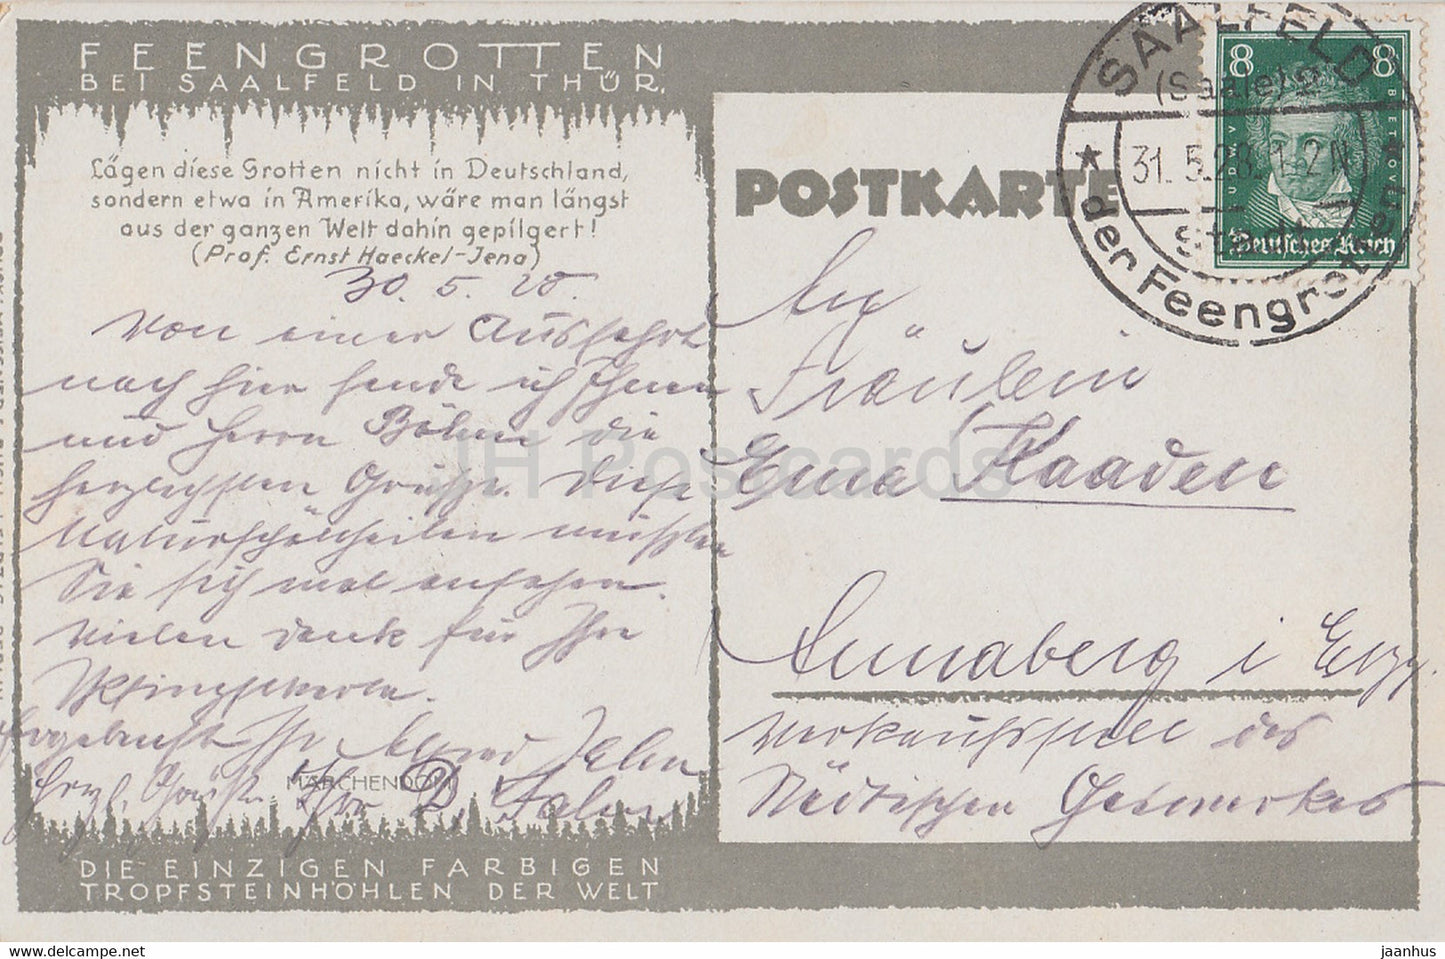 FEENGROTTEN
BEI SAALFELD IN THÜR.
Lägen diese Grotten nicht in Deutschland,
sondern etwa in Amerika, wäre man längst
aus der ganzen Welt dahin gepilgert!
(Prof. Ernst Haeckel-Jena)
30. 5. 28.
Von einer Ausfahrt
nach hier sende ich Ihnen
und Herrn Böhm die
herzlichsten Grüße. Diese
Naturschönheiten müßten
Sie sich mal ansehen.
Vielen Dank für Ihre
Ihr
Herzl. Grüße Ihre D.
MÄRCHENDOM
DIE EINZIGEN FARBIGEN
TROPFSTEINHÖHLEN DER WELT
POSTKARTE
SAALFELD
(Saale) 2
31.5.28.1-2N
Stadt
der Feengrotten
8 8
LUDW. V. BEETHOVEN
Deutsches Reich
An
Fräulein
Erna Kaaden
Annaberg i Erzg.
Verkaufsstelle des
Städtischen Gaswerkes
JH Postcards
www.delcampe.net
jaanhus